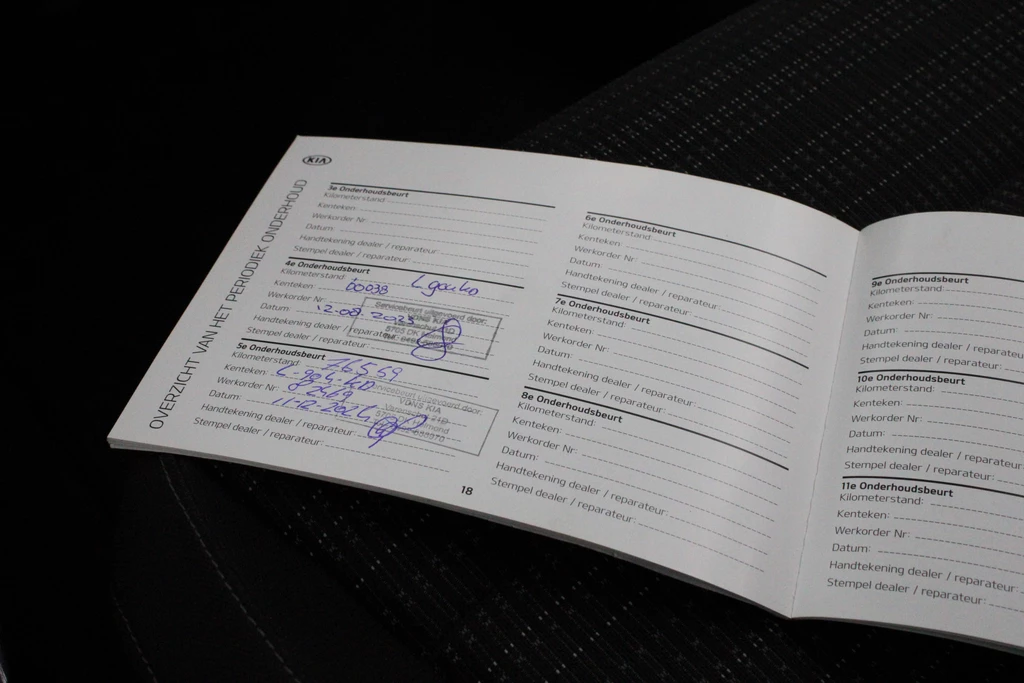 KIA
OVERZICHT VAN HET PERIODIEK ONDERHOUD
3e Onderhoudsbeurt
Kilometerstand:
Kenteken:
Werkorder Nr:
Datum:
Handtekening dealer / reparateur:
Stempel dealer / reparateur:
4e Onderhoudsbeurt
Kilometerstand:
Kenteken: 00038
Werkorder Nr:
Datum: 12-08 2023
Handtekening dealer / reparateur:
Stempel dealer / reparateur:
5e Onderhoudsbeurt
Kilometerstand: 76559
Kenteken:
Werkorder Nr: 82469
Datum: 11-12-2024
Handtekening dealer / reparateur:
Stempel dealer / reparateur:
Servicebeurt uitgevoerd door:
KIA
18
6e Onderhoudsbeurt
Kilometerstand:
Kenteken:
Werkorder Nr:
Datum:
Handtekening dealer / reparateur:
Stempel dealer / reparateur:
7e Onderhoudsbeurt
Kilometerstand:
Kenteken:
Werkorder Nr:
Datum:
Handtekening dealer / reparateur:
Stempel dealer / reparateur:
8e Onderhoudsbeurt
Kilometerstand:
Kenteken:
Werkorder Nr:
Datum:
Handtekening dealer / reparateur:
Stempel dealer / reparateur:
9e Onderhoudsbeurt
Kilometerstand:
Kenteken:
Werkorder Nr:
Datum:
Handtekening dealer / reparateur:
Stempel dealer / reparateur:
10e Onderhoudsbeurt
Kilometerstand:
Kenteken:
Werkorder Nr:
Datum:
Handtekening dealer / reparateur:
Stempel dealer / reparateur:
11e Onderhoudsbeurt
Kilometerstand:
Kenteken:
Werkorder Nr:
Datum:
Handtekening dealer / reparateur:
Stempel dealer / reparateur: